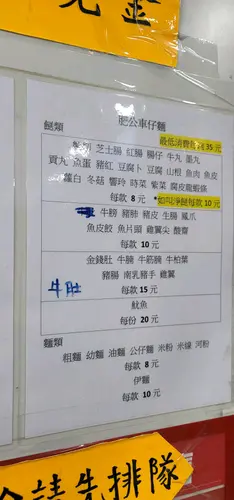 金
肥公車仔麵
餸類
最低消費$35元
芝士腸 紅腸 腸仔 牛丸 墨丸
貢丸 魚蛋 豬紅 豆腐卜 豆腐 山根 魚肉 魚皮
蘿白 冬菇 響玲 時菜 紫菜 腐皮龍蝦條
每款 8 元 *如叫淨餸每款 10 元
牛膀 豬肺 豬皮 生腸 鳳爪
魚皮餃 魚片頭 雞翼尖 酸齋
每款 10 元
金錢肚 牛腩 牛筋腩 牛柏葉
豬腸 南乳豬手 雞翼
牛肚 每款 15 元
魷魚
每份 20 元
麵類
粗麵 幼麵 油麵 公仔麵 米粉 米線 河粉
每款 8 元
伊麵
每款 10 元
請先排隊